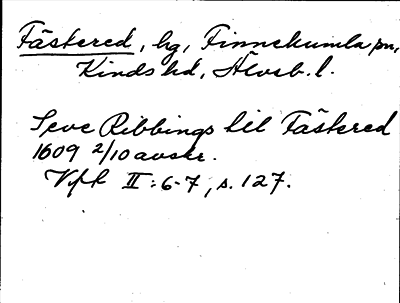 Fästered, hg, Finnekumla sn,
Kinds hd, Älvsb. l.
Seve Ribbings till Fästered
1609 2/10 avskr.
Vfk II: 6-7, s. 127.